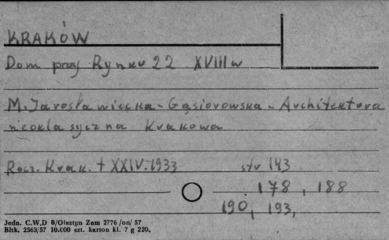 KRAKÓW
Dom przy Rynku 22 XVIII w
M. Jarosławiecka-Gąsiorowska - Architektura
neoklasyczna Krakowa
Rocz. Krak. t XXIV. 1933 str 143
178, 188
190, 193,
Jedn. C.W.D 8/Olsztyn Zam 2776 /on/ 57
Bltk. 2563/57 10.000 szt. karton kl. 7 g 220.